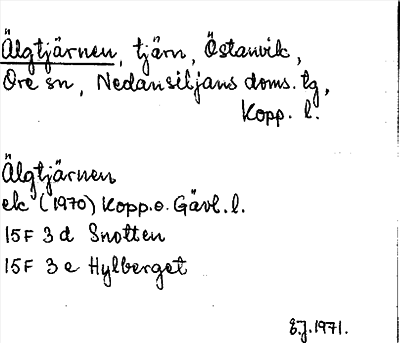 Älgtjärnen, tjärn, Östanvik,
Ore sn, Nedansiljans doms. tg,
Kopp. l.
Älgtjärnen
ek (1970) Kopp. o. Gävl. l.
15F 3d Snotten
15F 3e Hylberget
E.J. 1971.